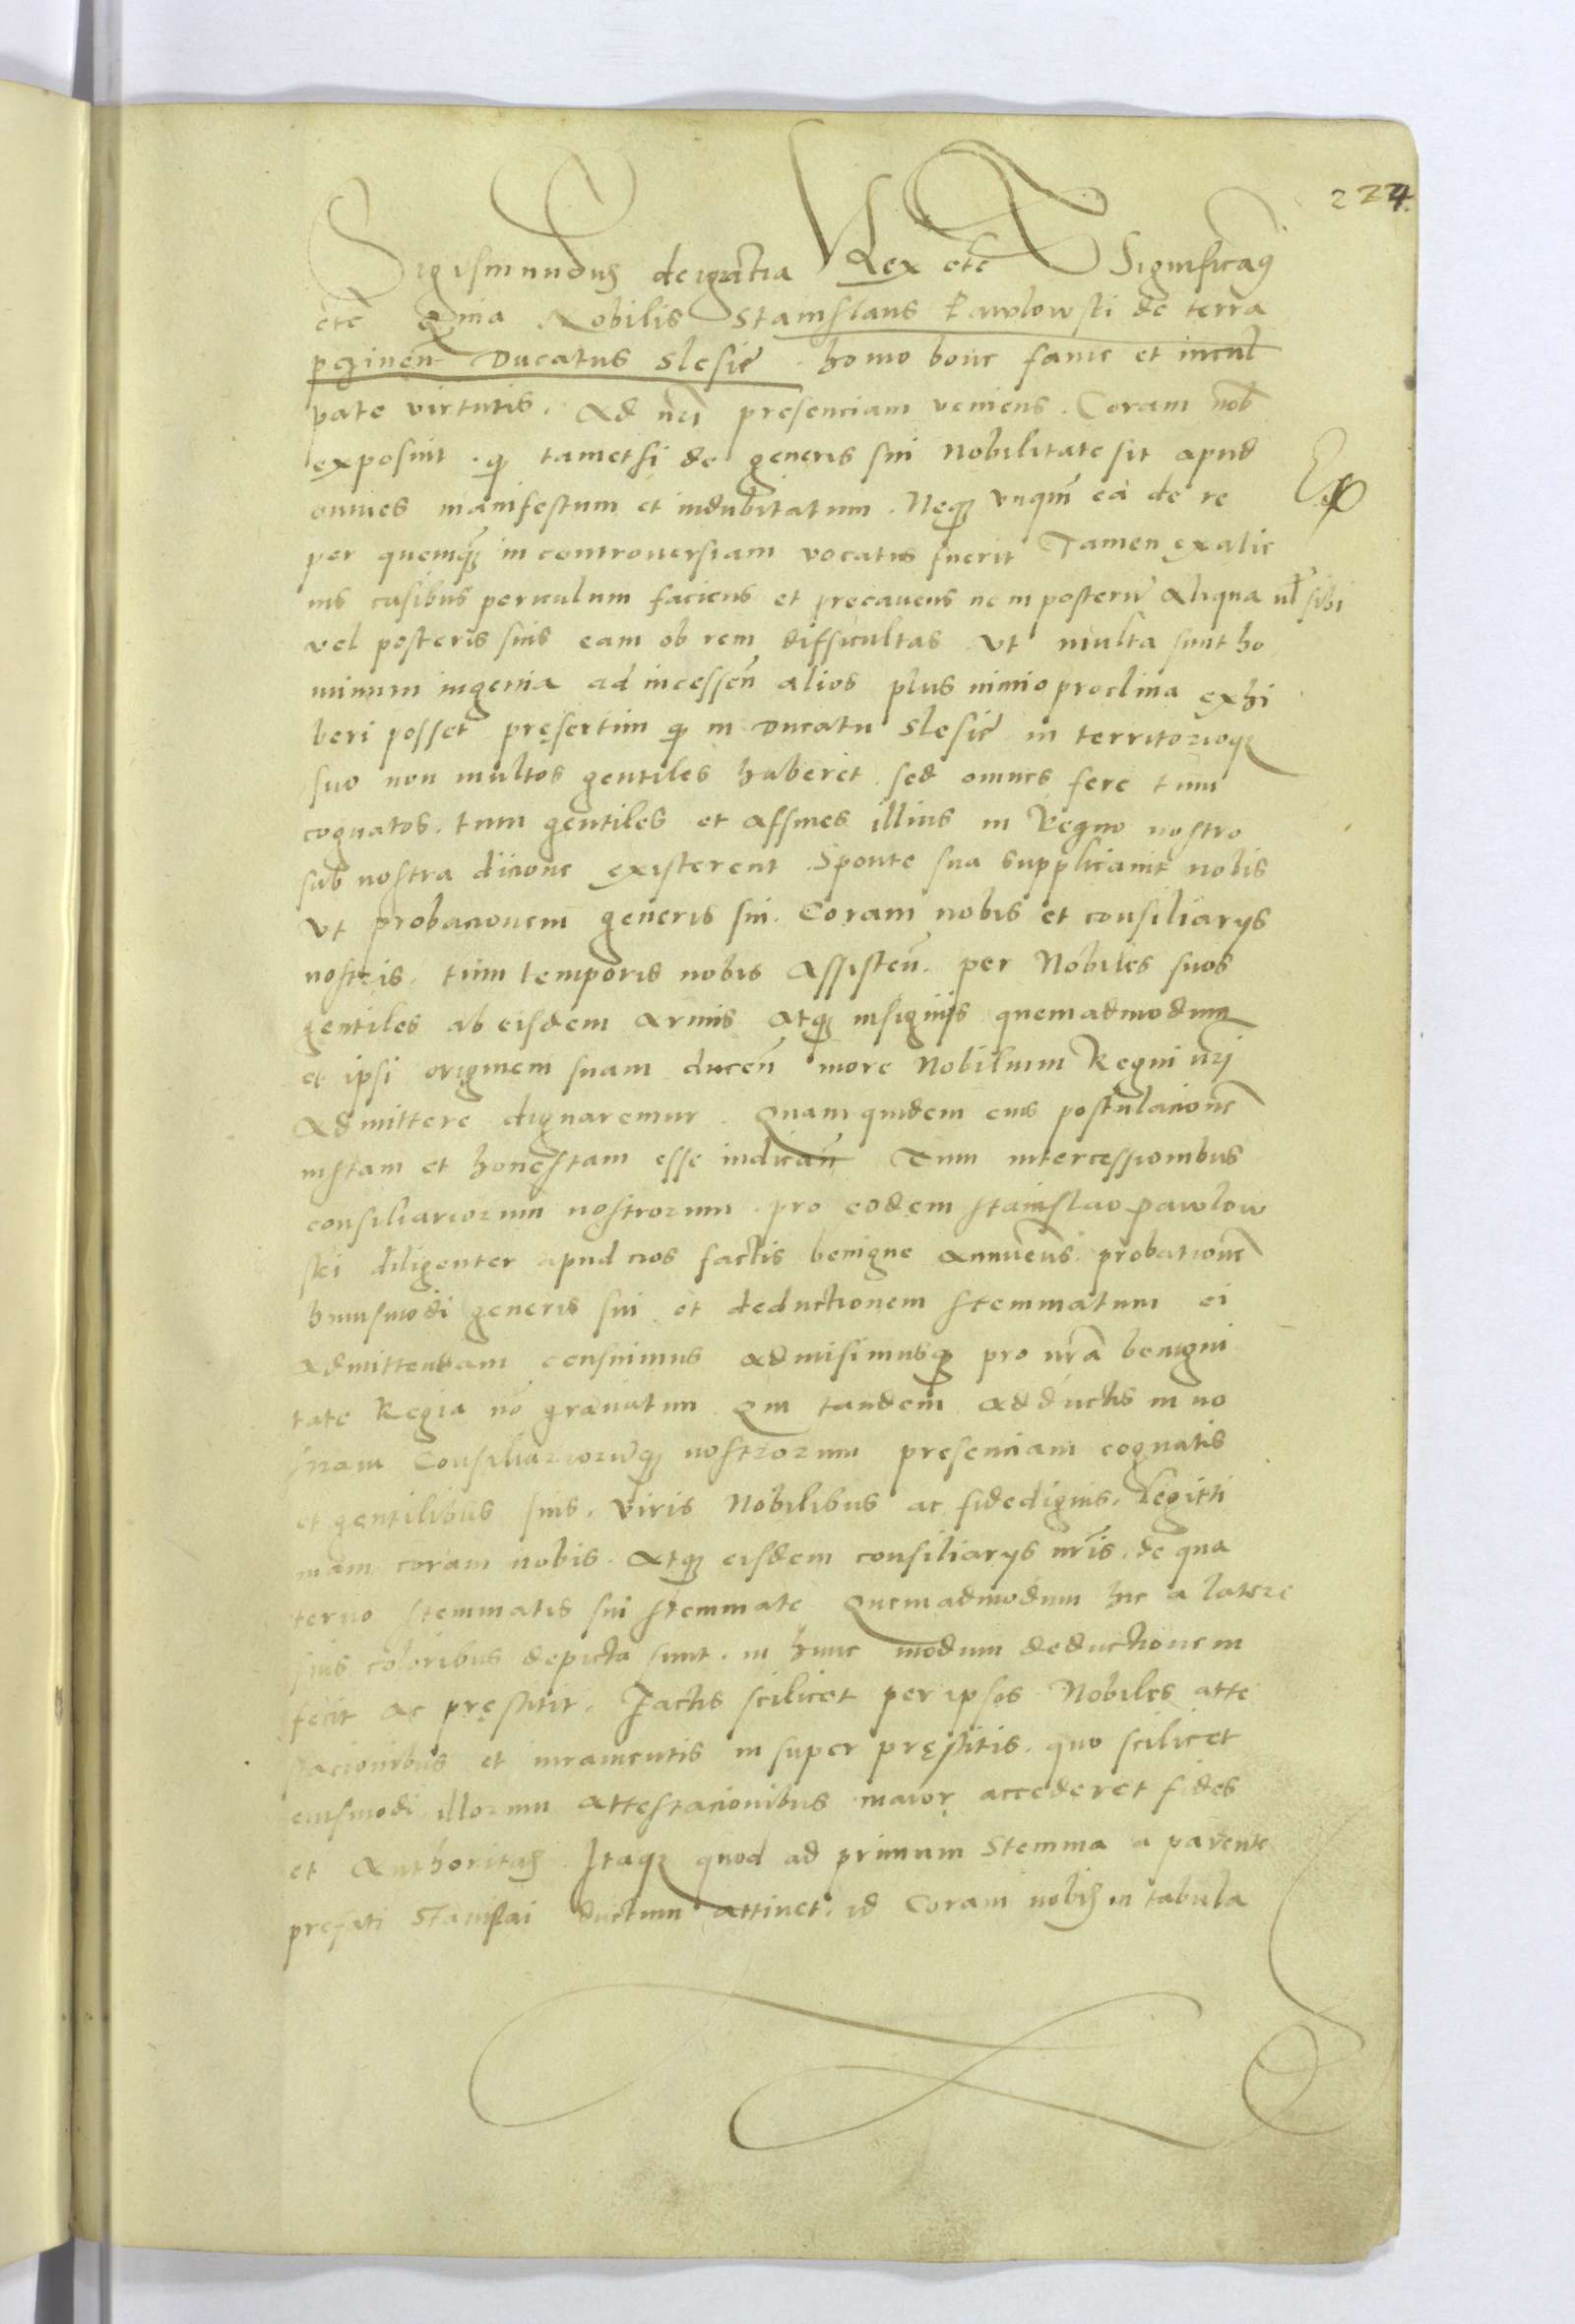 224.
Sigismundus dei gratia Rex etc Significamus
etc quia Nobilis Stanislaus Pawlowski de terra
Ducatus Slesie homo bone fame et incul
pate virtutis. Ad nri presenciam veniens. Coram nob
exposuit. q tamethsi de generis sui Nobilitate sit apud
omnes manifestum et indubitatum. Neq vnqm ea de re
per quemq in controuersiam vocatus fuerit Tamen ex alie
nis casibus periculum faciens et precauens ne in posterum aliqua vl sibi
vel posteris suis eam ob rem difficultas vt multa sunt ho
minum ingenia ad incessen alios plus nimio procliuia exhi
beri posset presertim q in Ducatu Slesie in territorioq
suo non multos gentiles haberet. sed omnes fere tum
cognatos. tum gentiles et affines illius in Regno nostro
sub nostra dicione existerent. Sponte sua supplicauit nobis
vt probacionem generis sui. Coram nobis et consiliarijs
nostris. tum temporis nobis Assisten. per Nobiles suos
gentiles ab eisdem armis atq insignijs quemadmodum
et ipsi originem suam ducen more Nobilium Regni nri
Admittere dignaremur. Quam quidem eius postulacione
iustam et honestam esse iudican Tum intercessionibus
consiliariorum nostrorum. pro eodem Stanislao Pawlow
ski diligenter apud nos factis benigne annuens. probatione
huiusmodi generis sui et deductionem stemmatum ei
admittendam censuimus admisimusq pro nra benigni
tate Regia no grauatim Qui tandem adductis in no
stram Consiliariorumq nostrorum presenciam cognatis
et gentilibus suis. viris Nobilibus ac fidedignis. Legitti
mam coram nobis. atq eisdem consiliarijs nris. de qua
terno stemmatis sui stemmate Quemadmodum hic a latere
suis coloribus depicta sunt. in hunc modum deductionem
fecit ac prestitit. Factis scilicet per ipsos Nobiles atte
stacionibus et iuramentis insuper prestitis. quo scilicet
eiusmodi illorum attestacionibus maior accederet fides
et Authoritas. Itaq quod ad primum Stemma a parente
prefati Stanislai ductum attinet. id Coram nobis in tabula